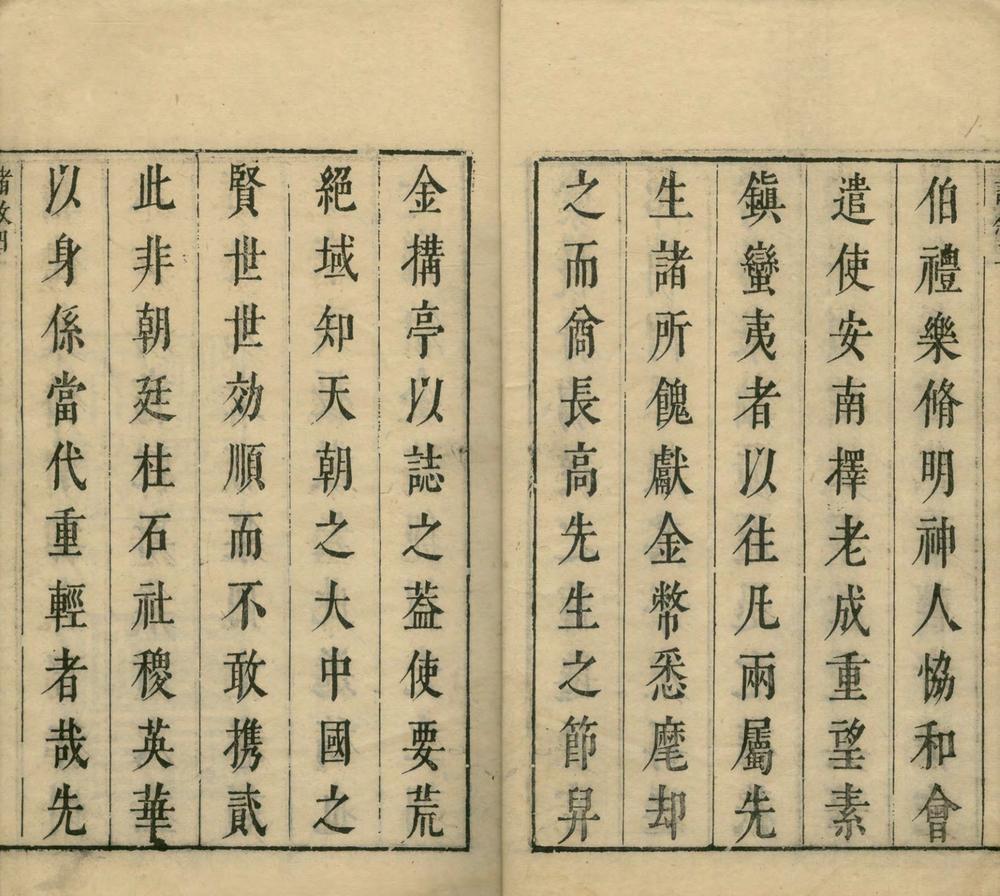 伯禮樂脩明神人恊和會
遣使安南擇老成重望素
鎮蠻夷者以往凡兩屬先
生諸所餽獻金幣悉麾却
之而酋長高先生之節昇
金搆亭以誌之葢使要荒
絕域知天朝之大中國之
賢世世效順而不敢携貳
此非朝廷柱石社稷英華
以身係當代重輕者哉先